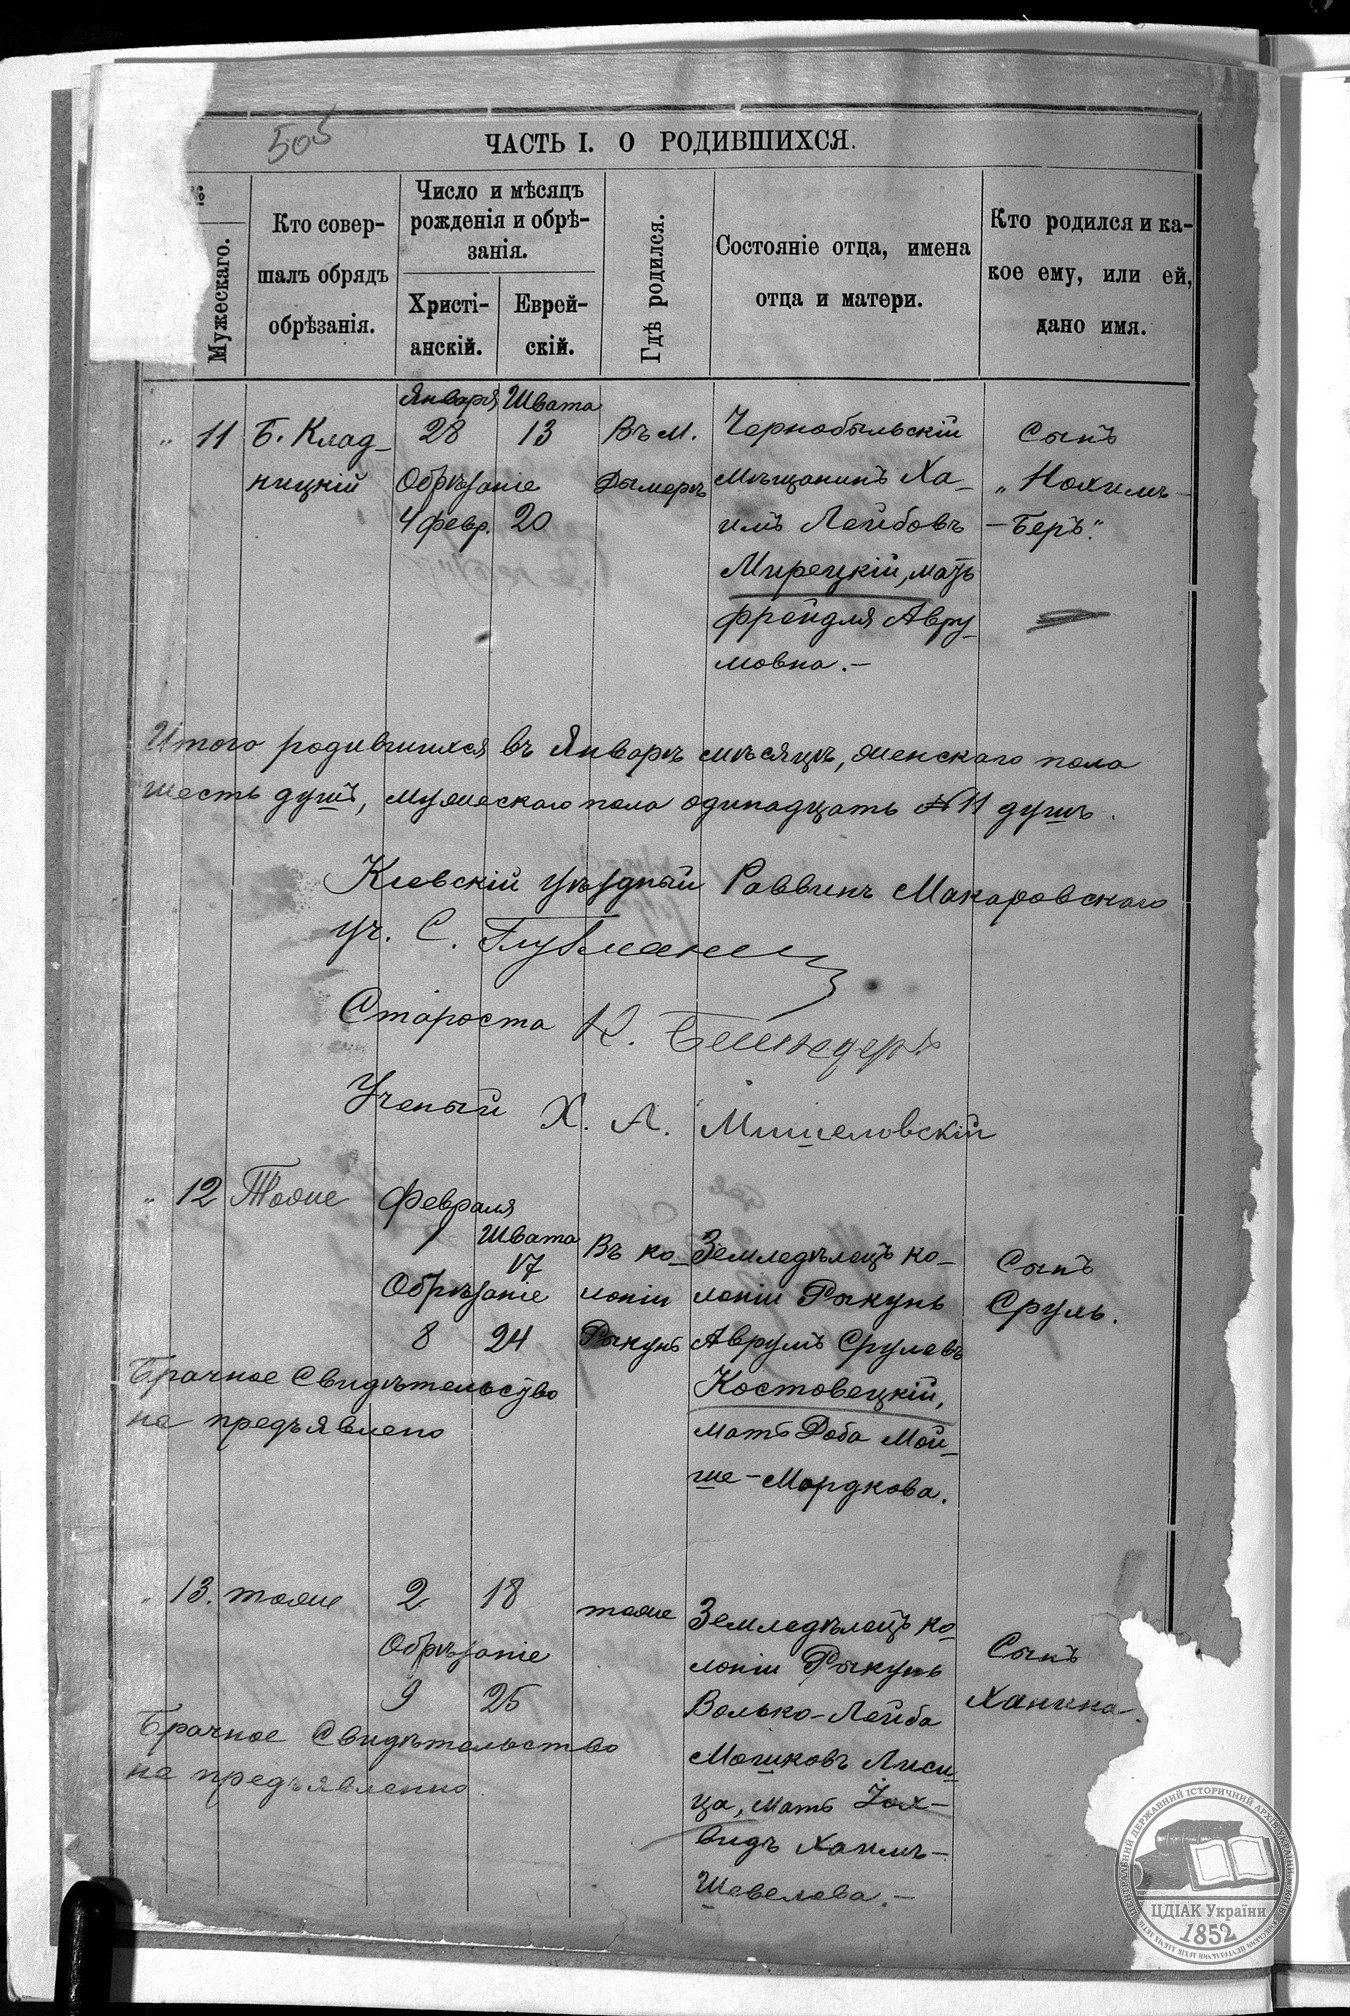 505
ЧАСТЬ I. О РОДИВШИХСЯ.
№
Мужескаго.
Кто совер-
шалъ обрядъ
обрѣзанія.
Число и мѣсяцъ
рожденія и обрѣ-
занія.
Христі-
анскій.
Еврей-
скій.
Гдѣ родился.
Состояніе отца, имена
отца и матери.
Кто родился и ка-
кое ему, или ей,
дано имя.
" 11
Б. Клад-
ницкій
Января
28
Обрѣзаніе
4 февр.
Швата
13
20
Въ м.
Дымеръ
Чернобыльскій
мѣщанинъ Ха-
имъ Лейбовъ
Мирецкій, мать
Фрейдля Авру-
мовна.-
Сынъ
„Нохимъ-
-Беръ".
Итого родившихся въ Январѣ мѣсяцѣ, женскаго пола
шесть душъ, мужескаго пола одинадцать №11 душъ.
Кіевскій уѣздный Раввинъ Макаровскаго
уч. С.
Староста К.
Ученый Х. А. Мишеловскій
" 12
Тоже
Февраля
1
Швата
17
Обрѣзаніе
8
24
Въ ко-
лоніи
Рыкунь
Земледѣлецъ ко-
лоніи Рыкунь
Аврумъ Срулевъ
Костовецкій,
мать Доба Мой-
ше-Мордкова.
Сынъ
Сруль.
Брачное Свидѣтельство
не предъявлено
" 13.
тоже
2
18
Обрѣзаніе
9
25
тоже
Земледѣлецъ ко-
лоніи Рыкунь
Волько-Лейба
Мошковъ Лиси-
ца, мать Iох-
видъ Хаимъ-
Шевелева.-
Сынъ
Ханина.
Брачное Свидѣтельство
не предъявленно
ЦЕНТРАЛЬНИЙ ДЕРЖАВНИЙ ІСТОРИЧНИЙ АРХІВ УКРАЇНИ, М. КИЇВ
ЦДІАК України
1852